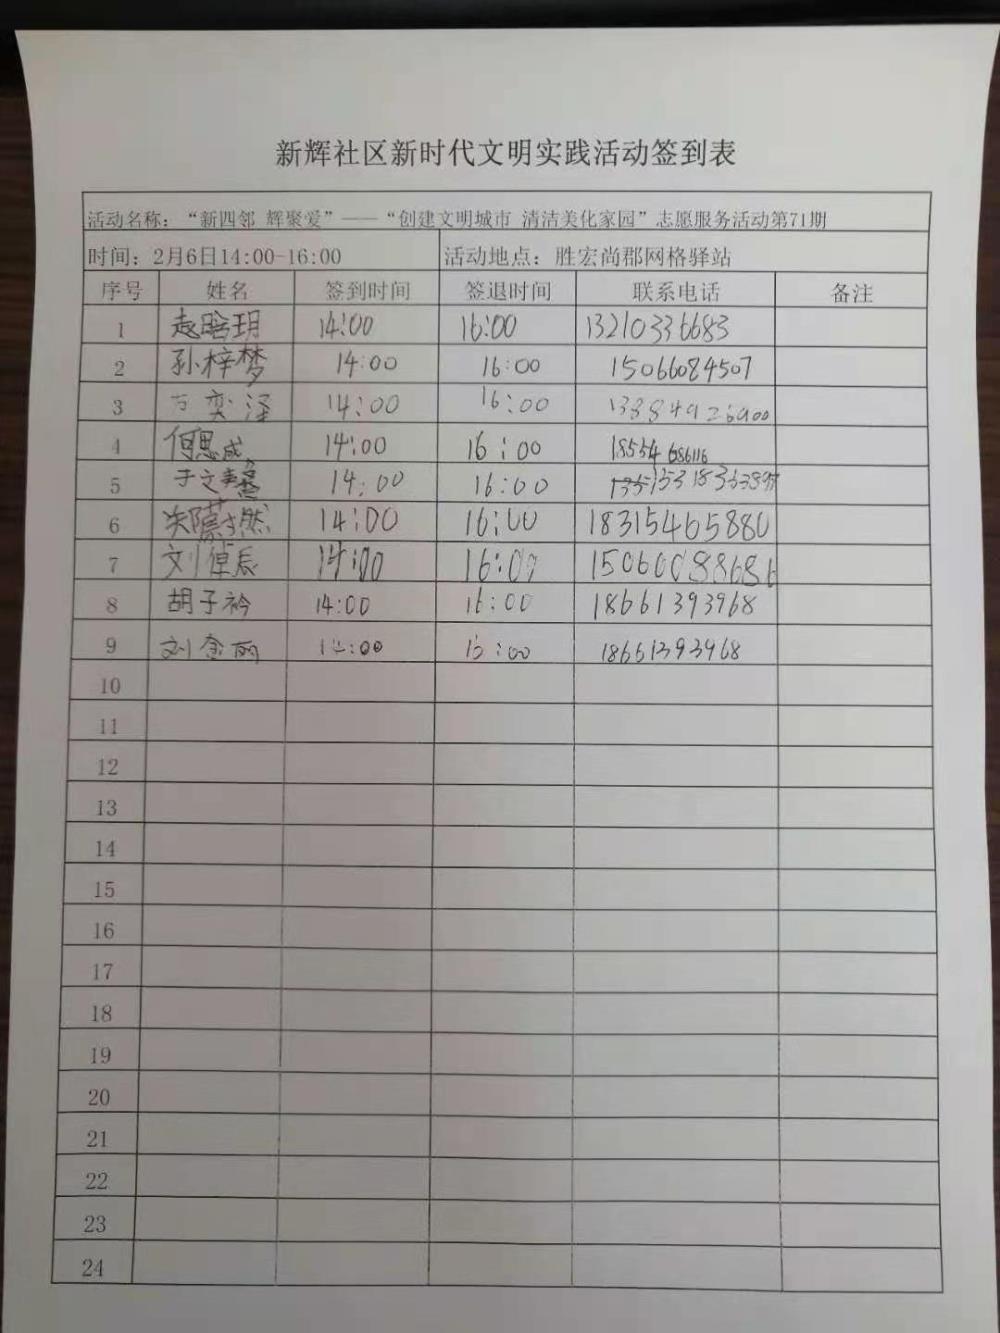 新辉社区新时代文明实践活动签到表
活动名称：“新四邻 辉聚爱”——“创建文明城市 清洁美化家园”志愿服务活动第71期
时间：2月6日14:00-16:00 活动地点：胜宏尚郡网格驿站
序号 姓名 签到时间 签退时间 联系电话 备注
1 赵晗玥 14:00 16:00 13210336683
2 孙梓梦 14:00 16:00 15066084507
3 方奕泽 14:00 16:00
4 何思成 14:00 16:00 18554686116
5 于文 14:00 16:00
6 14:00 16:00 18315465880
7 刘倬辰 14:00 16:00 15060088686
8 胡子衿 14:00 16:00 18661393968
9 刘金丽 14:00 16:00 18661393968
10
11
12
13
14
15
16
17
18
19
20
21
22
23
24